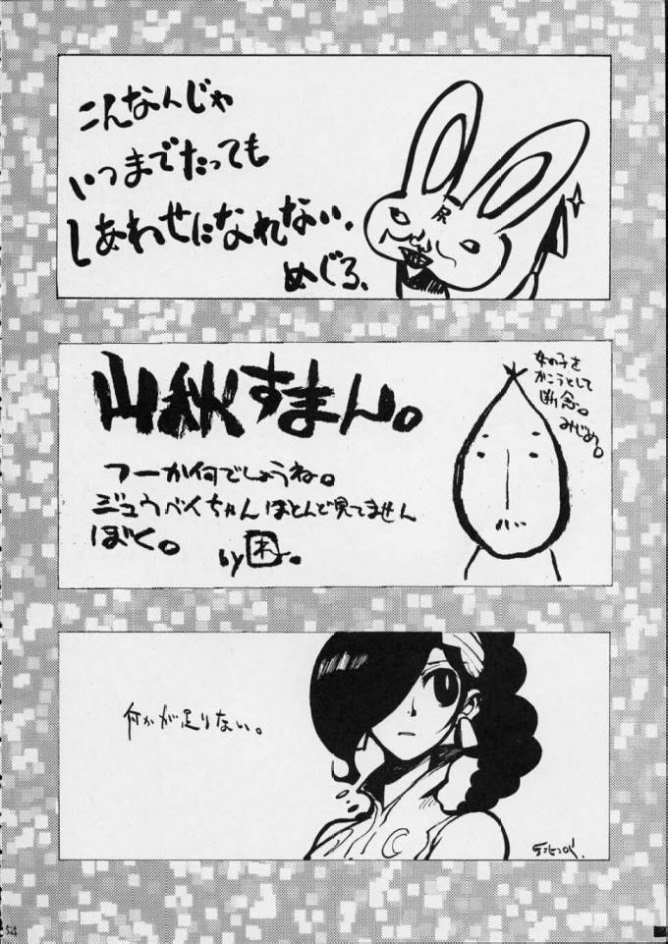 こんなんじゃ
いつまでたっても
しあわせになれない、
めぐろ、
尿
山秋すまん。
つーか何でしょうね。
ジュウベイちゃんほとんど見てません
ぼく。
by困。
女の子を
かこうとして
断念。
みじめ。
何かが足りない。
54